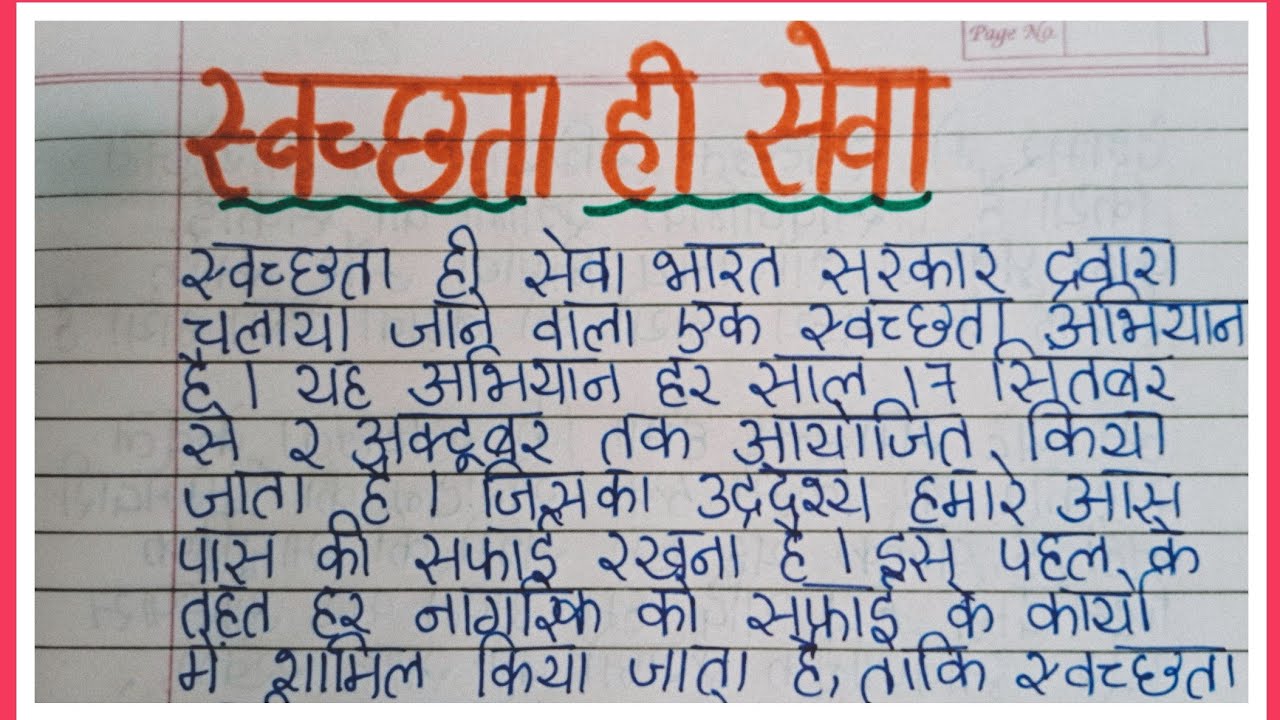 Page No.
स्वच्छता ही सेवा
स्वच्छता ही सेवा भारत सरकार द्रवारा
चलाया जाने वाला एक स्वच्छता अभियान
है। यह अभियान हर साल 17 सितंबर
से 2 अक्टूबर तक आयोजित किया
जाता है। जिसका उद्रदेश्य हमारे आस
पास की सफाई रखना है। इस पहल के
तहत हर नागरिक को सफाई के कार्यो
में शामिल किया जाता है, ताकि स्वच्छता